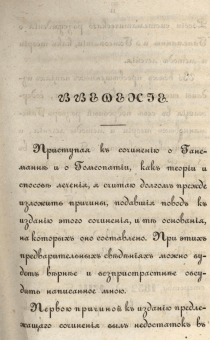 ВВЕДЕНІЕ.
Приступая къ сочиненію о Ганеманнѣ и о Гомеопатіи, какъ теоріи и
способѣ леченія, я считаю долгомъ прежде
изложить причины, подавшія поводъ къ
изданію этого сочиненія, и тѣ основанія,
на которыхъ оно составлено. При этихъ
предварительныхъ свѣденіяхъ можно будетъ вѣрнѣе и безпристрастнѣе обсудить написанное мною.
Первою причиной къ изданію предлежащаго сочиненія былъ недостатокъ въ